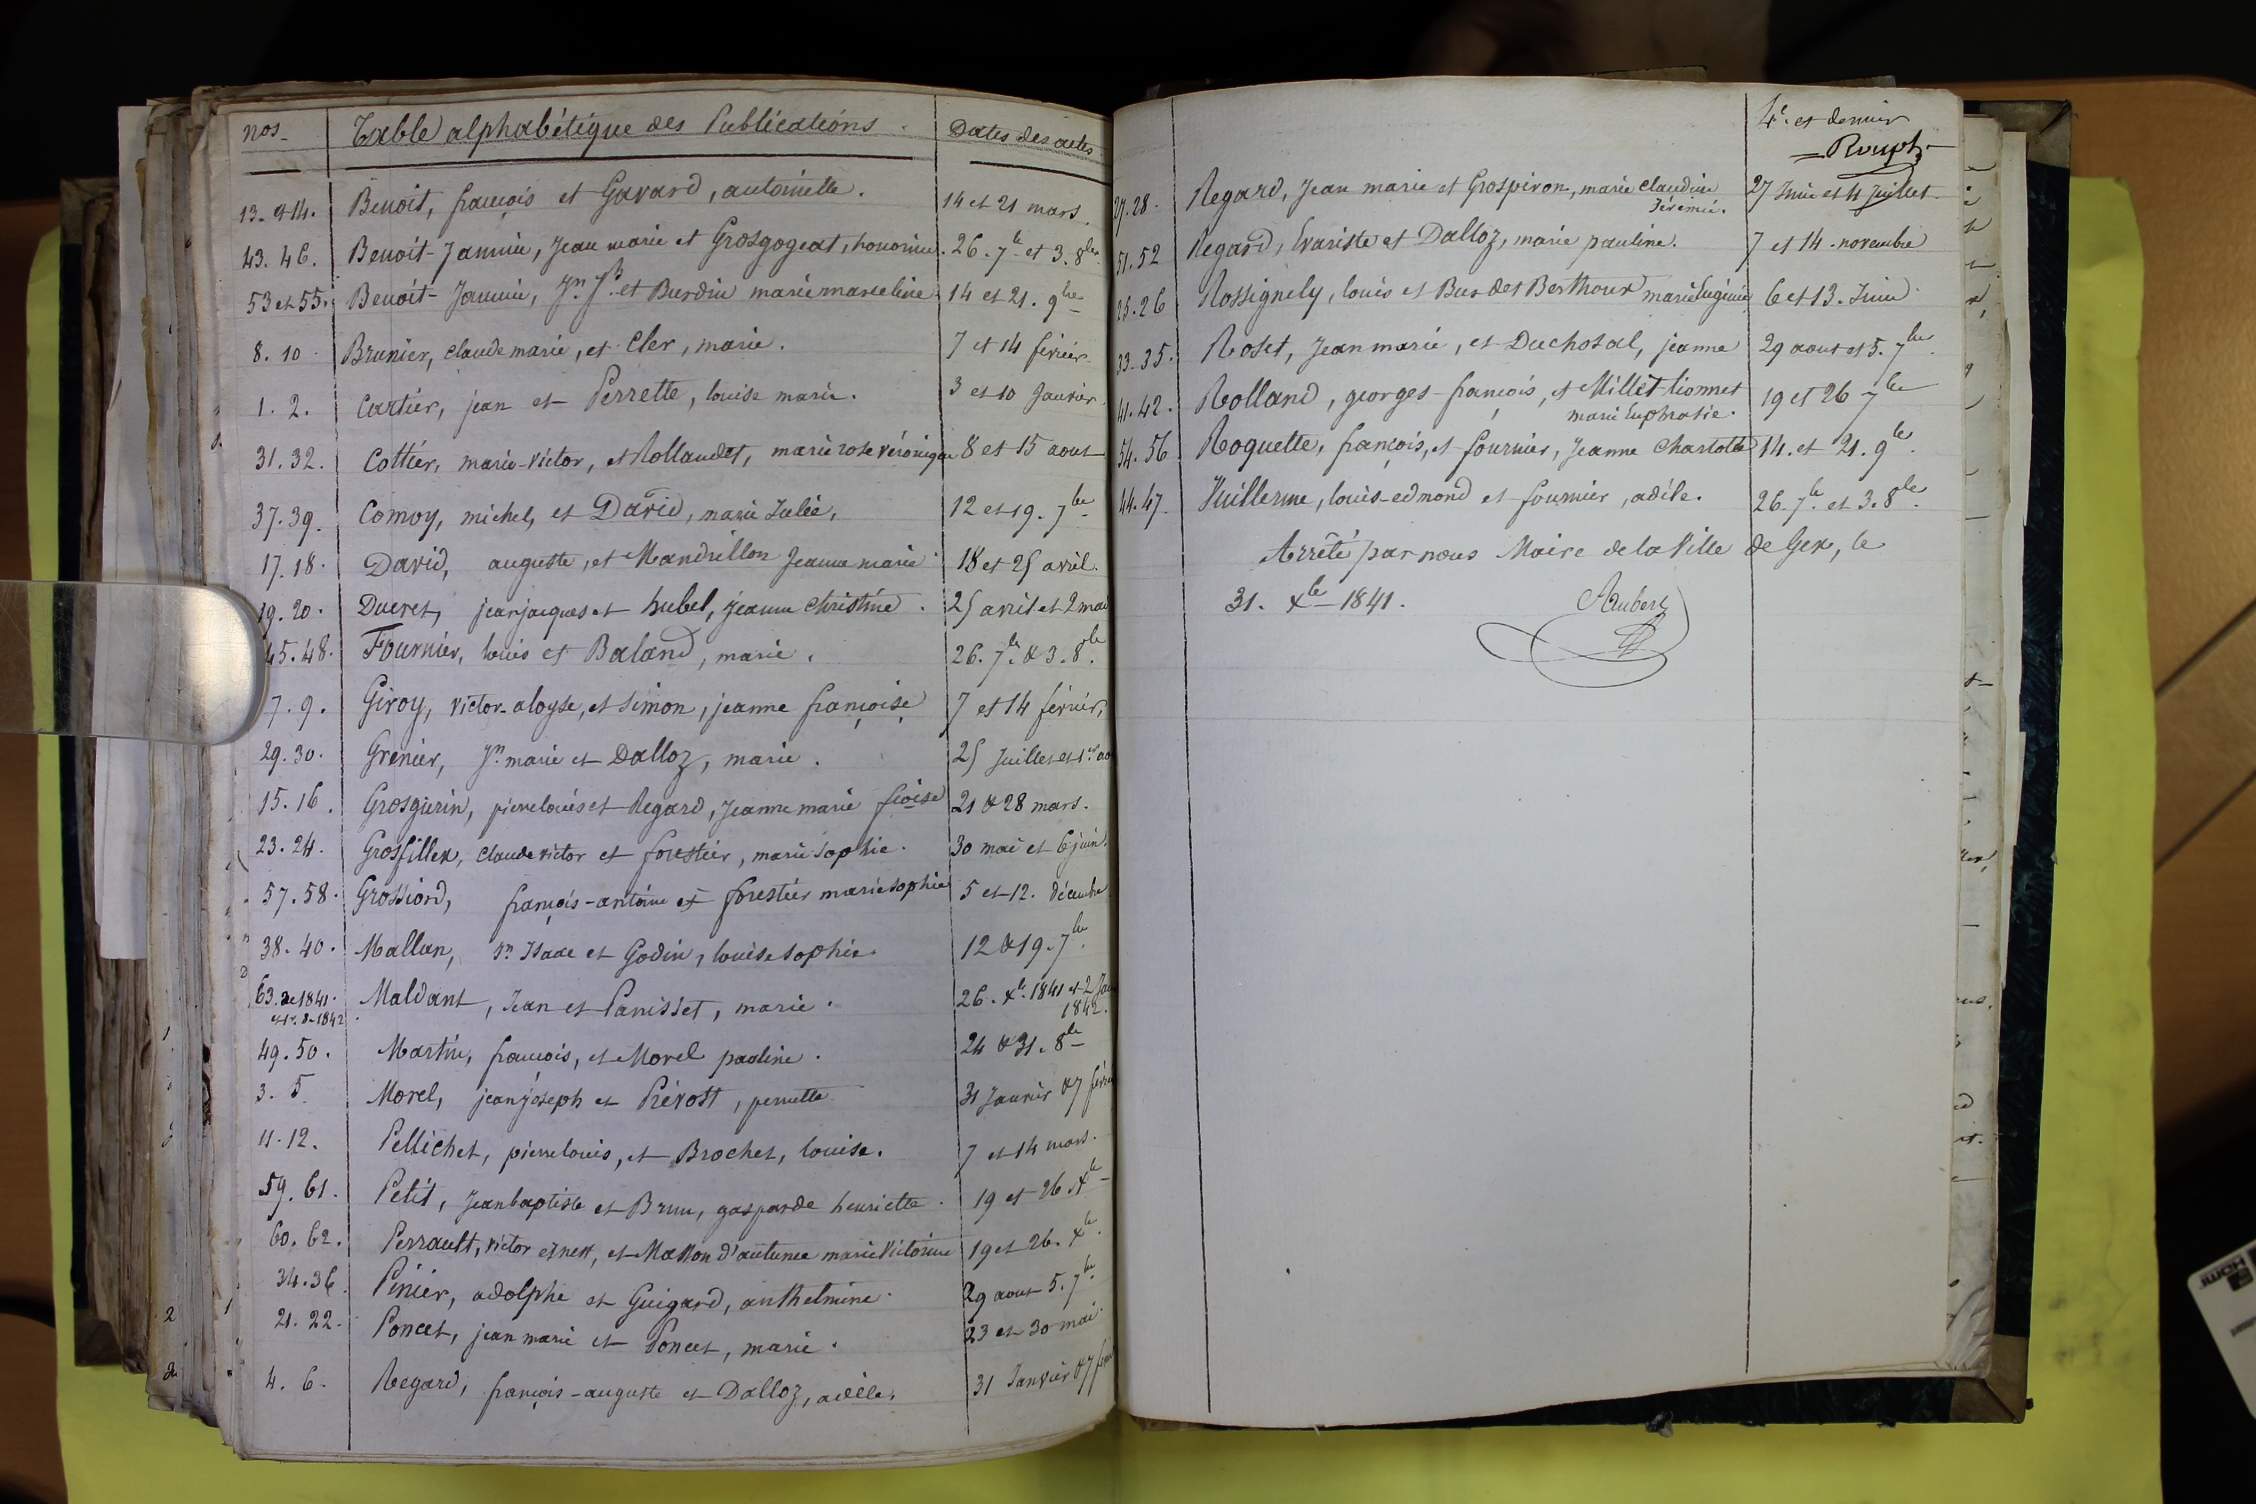 nos
Table alphabétique des Publications.
Dates des actes
13. et 14. Benoit, françois et Gavard, antoinette. 14 et 21 mars.
43. 46. Benoit-Jannin, Jean marie et Grosgogeat, honorine. 26. 7bre et 3. 8bre
53 et 55. Benoit-Jannin, Jn Jh et Burdin marie marceline 14 et 21. 9bre
8. 10. Brunier, claude marie, et Cler, marie. 7 et 14 février
1. 2. Cartier, jean et Perrette, louise marie. 3 et 10 Janvier
31. 32. Cottier, marie-victor, et Rollandet, marie rose véronique 8 et 15 aout
37. 39. Comoy, michel, et David, marie Julie, 12 et 19. 7bre
17. 18. David, auguste, et Mandrillon Jeanne marie 18 et 25 avril.
19. 20. Ducret, jean jacques et hubel, jeanne christine. 25 avril et 2 mai
45. 48. Fournier, louis et Baland, marie. 26. 7bre & 3. 8bre.
7. 9. Giroy, victor-aloyse, et Simon, jeanne françoise 7 et 14 février,
29. 30. Grenier, Jn marie et Dalloz, marie. 25 Juillet et 1er ao
15. 16. Grosgurin, pierre louis et Regard, Jeanne marie fçoise 21 & 28 mars.
23. 24. Grosfillex, claude victor et forestier, marie sophie. 30 mai et 6 juin.
57. 58. Grossiord, françois-antoine et forestier marie sophie 5 et 12. décembre
38. 40. Mallan, Jn Isaac et Godin, louise sophie 12 & 19. 7bre.
63. de 1841. Maldant, Jean et Panisset, marie. 26. Xbre. 1841 et 2 Jan
1842.
49. 50. Martin, françois, et Morel pauline. 24 & 31. 8bre
3. 5 Morel, jean joseph et Prévost, pernette 31 Janvier & 7 févr
11. 12. Pellichet, pierre louis, et Brochet, louise. 7 et 14 mars.
59. 61. Petit, Jean baptiste et Brun, gasparde henriette. 19 et 26 Xbre
60. 62. Perrault, victor ernest, et Masson d'autume marie victorine 19 et 26. Xbre.
34. 36. Pinier, adolphe et Guigard, anthelmine. 29 aout 5. 7bre.
21. 22. Poncet, jean marie et Poncet, marie. 23 et 30 mai.
4. 6. Regard, françois-auguste et Dalloz, adèle. 31 Janvier & 7 fév
4e. et dernier
27. 28. Regard, Jean marie et Grospiron, marie claudine 27 Juin et 4 Juillet
Jérémie.
51. 52 Regard, Evariste et Dalloz, marie pauline. 7 et 14. novembre
25. 26 Rossignely, louis et Burdet Berthoux marie Eugénie 6 et 13. Juin
33. 35. Roset, Jean marie, et Duchosal, jeanne 29 aout et 5. 7bre.
41. 42. Rolland, georges-françois, et Millet-lionnet 19 et 26 7bre
marie Euphrasie.
54. 56 Roquette, françois, et fournier, Jeanne Charlotte 14. et 21. 9bre.
44. 47. Vuillerme, louis-edmond et fournier, adèle. 26. 7bre. et 3. 8bre.
Arrêté par nous Maire de la Ville de Gex, le
31. Xbre 1841. Aubert